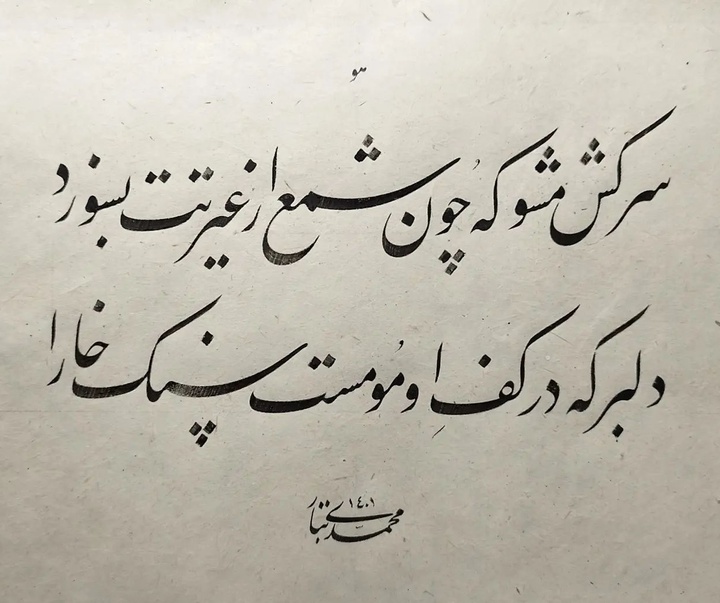 هو
سرکش مشو که چون شمع از غیرتت بسوزد
دلبر که در کف او مومست سنگ خارا
۱۴۰۱
محمدی تبار